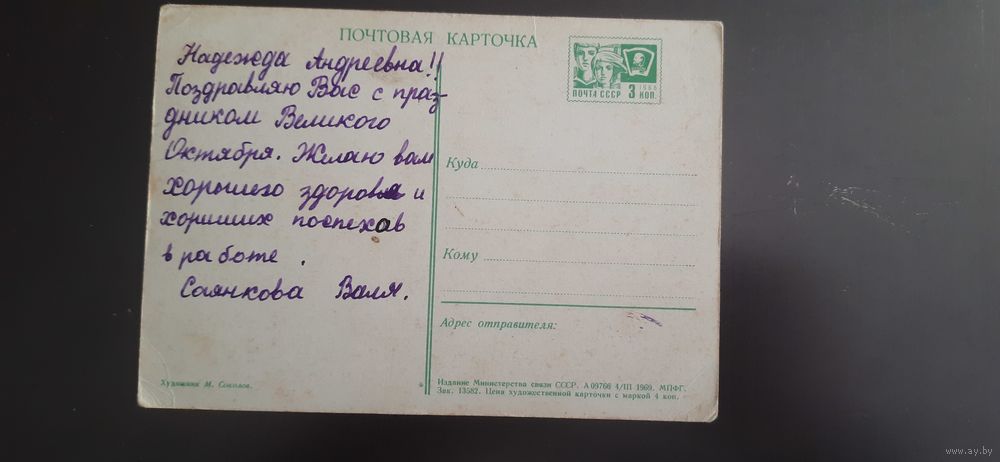 ПОЧТОВАЯ КАРТОЧКА
Надежда Андреевна!!
Поздравляю Вас с праз-
дником Великого
Октября. Желаю вам
хорошего здоровя и
хориших поспехов
в работе.
Саянкова Валя.
Художник М. Соколов.
ПОЧТА СССР 3 КОП.
1966
Куда
Кому
Адрес отправителя:
Издание Министерства связи СССР. А 09766 4/III 1969. МПФГ.
Зак. 13582. Цена художественной карточки с маркой 4 коп.
www.ay.by